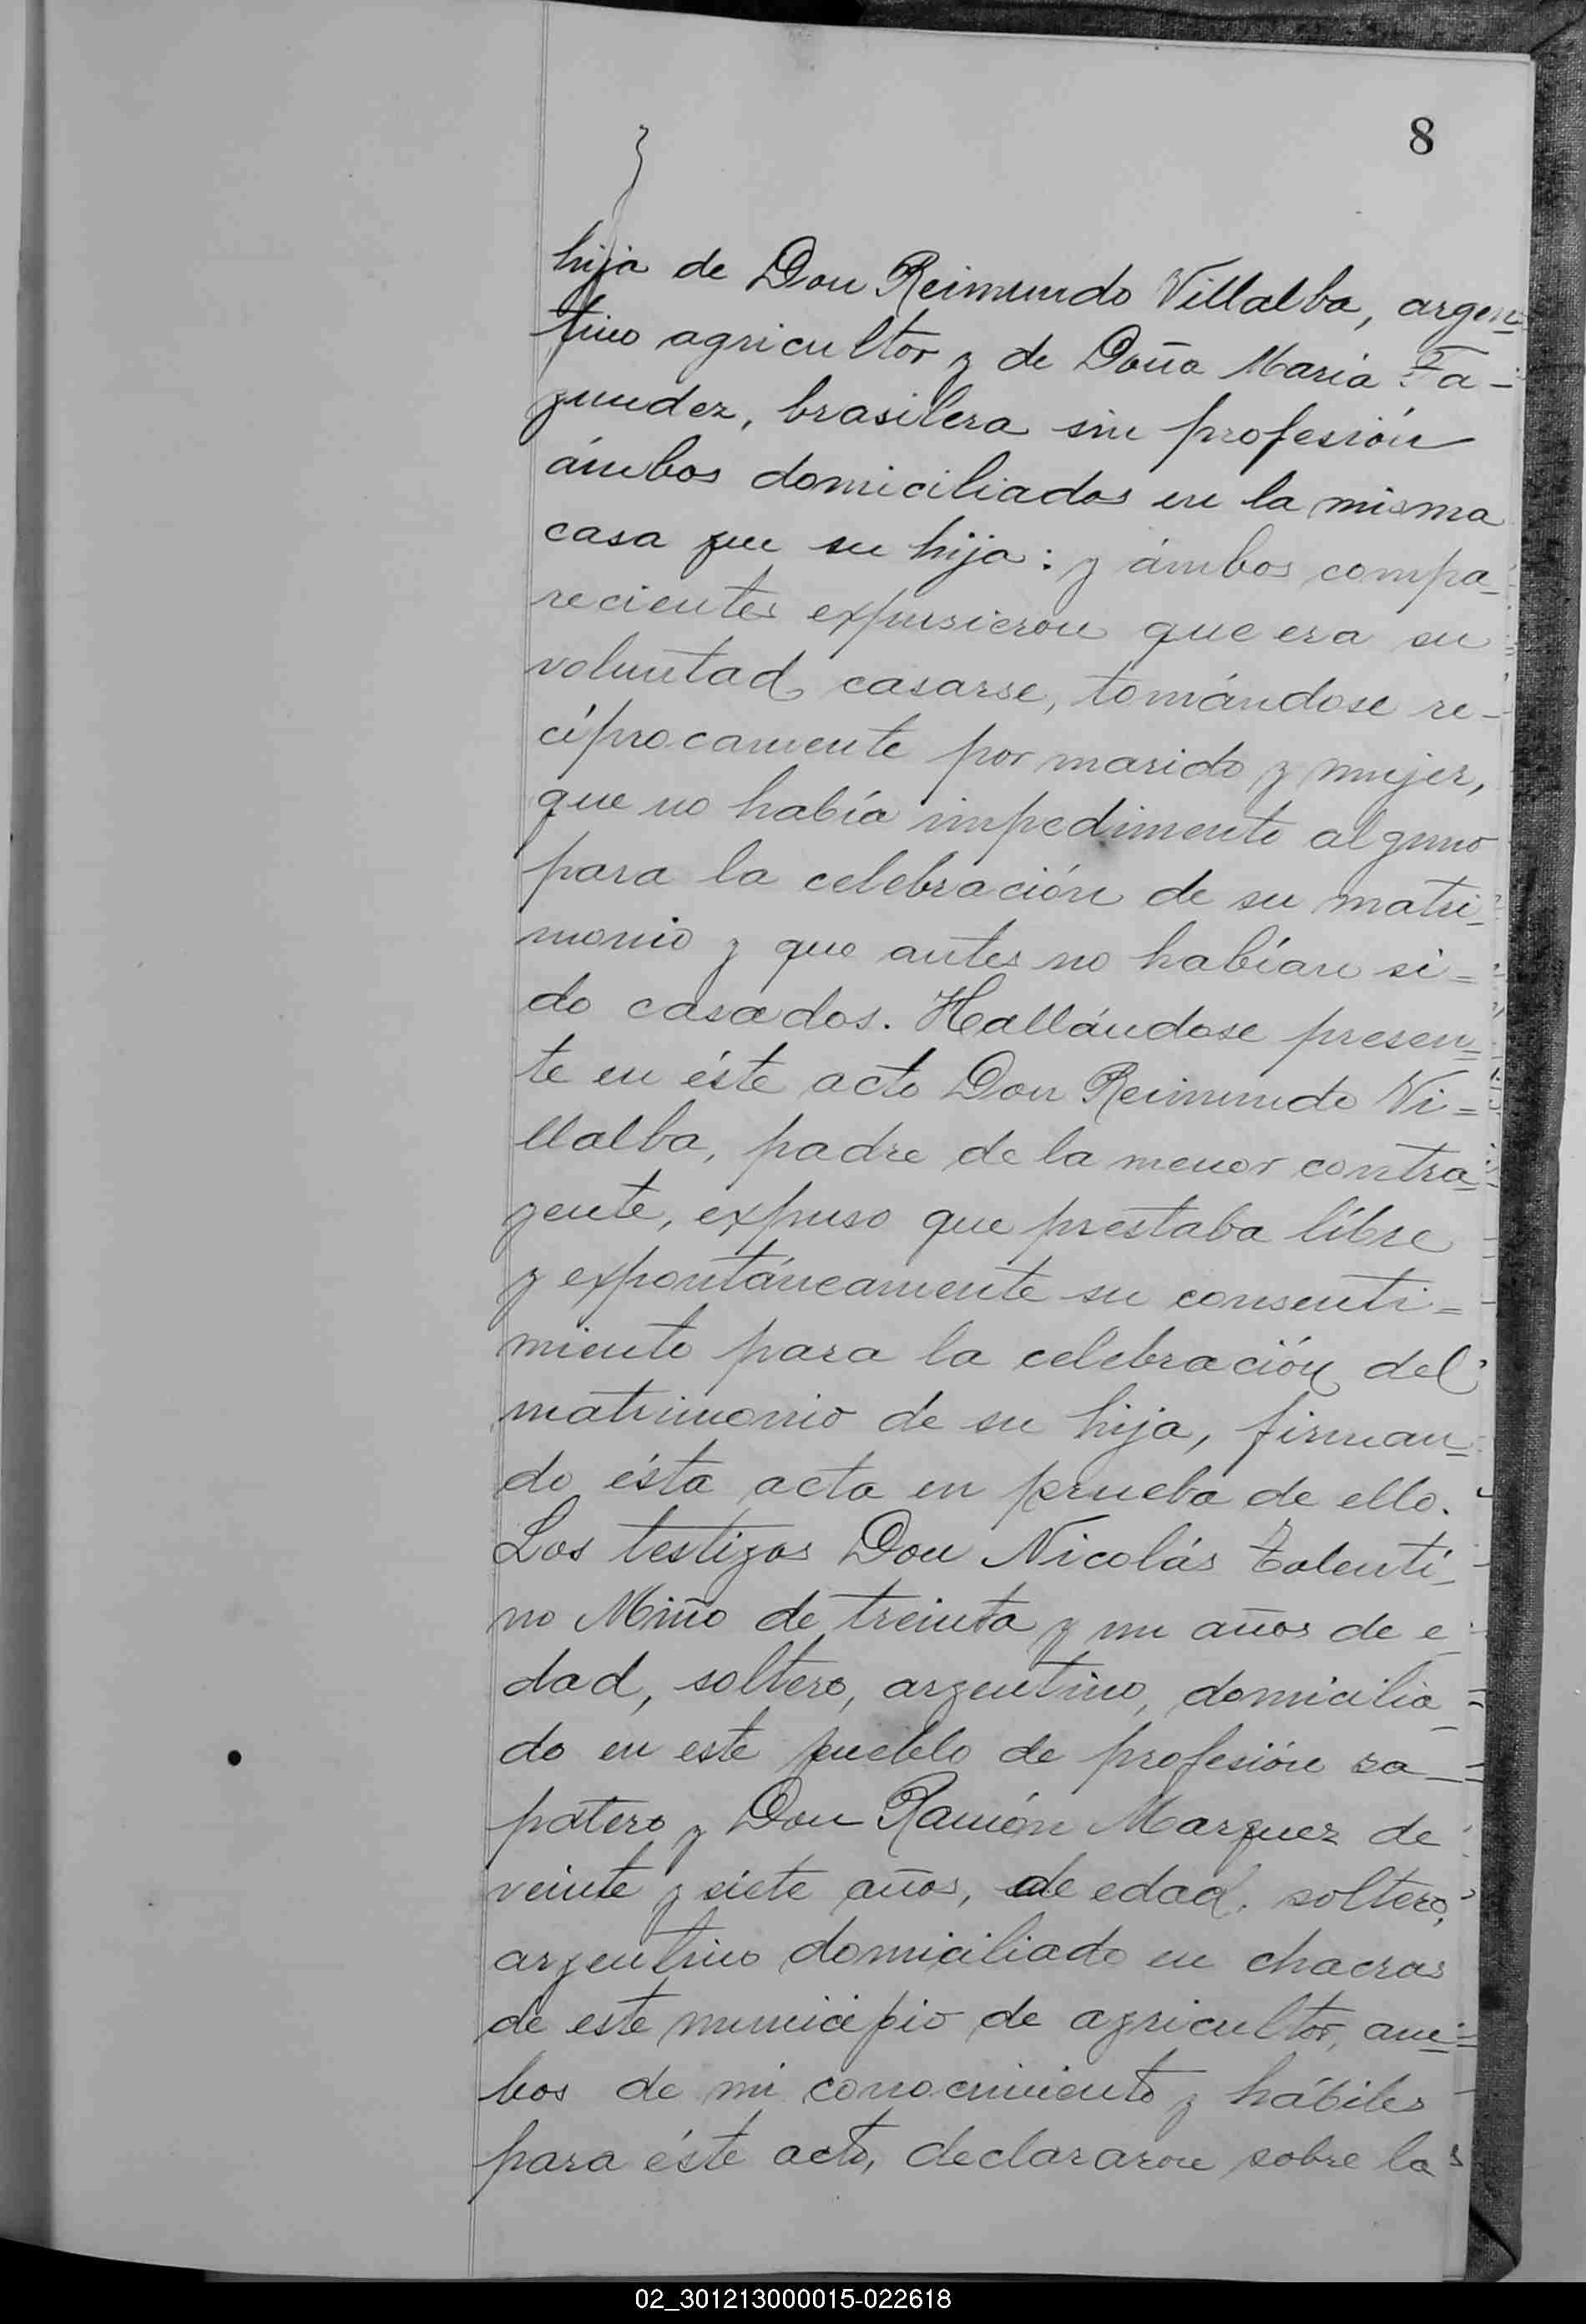 8
hija de Don Reimundo Villalba, argen=
tino agricultor y de Doña María Fa-
gundez, brasilera sin profesión
ámbos domiciliados en la misma
casa que su hija: y ámbos compa-
recientes expusieron que era su
voluntad casarse, tomándose re-
cíprocamente por marido y mujer,
que no había impedimento alguno
para la celebración de su matri-
monio y que antes no habían si=
do casados. Hallándose presen=
te en éste acto Don Reimundo Vi=
llalba, padre de la menor contra-
yente, expuso que prestaba líbre
y expontáneamente su consenti=
miento para la celebración del
matrimonio de su hija, firman=
do ésta acta en prueba de ello.
Los testigos Don Nicolás Tolenti-
no Miño de treinta y un años de e-
dad, soltero, argentino, domicilia-
do en este pueblo de profesión za-
patero y Don Ramón Marquez de
veinte y siete años, de edad, soltero,
argentino domiciliado en chacras
de este municipio de agricultor, am=
bos de mi conocimiento y hábiles
para éste acto, declararon sobre la
02_301213000015-022618